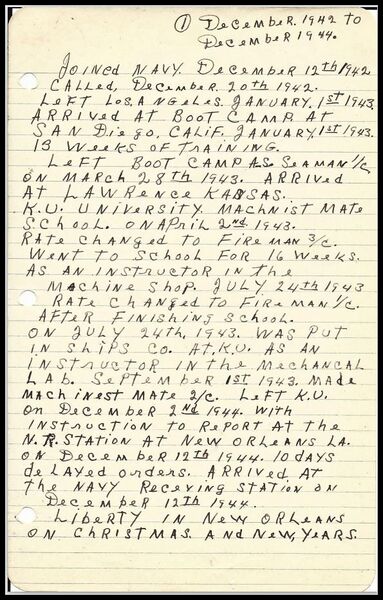 ① December. 1942 to
December 1944.
Joined Navy. December 12th 1942
Called, December. 20th 1942.
Left Los.Angeles. January. 1st 1943.
Arrived at Boot Camp. At
San Diego, Calif. January. 1st 1943.
13 Weeks of training.
Left Boot Camp. As Seaman 1/c.
on March 28th 1943. Arrived
At Lawrence Kansas.
K.U. University. Machnist Mate
School. on April 2nd. 1943.
Rate changed to Fireman 3/c.
Went to School for 16 Weeks.
As an instructor in the
Machine Shop. July 24th 1943
Rate changed to Fireman 1/c.
After finishing School.
on July 24th, 1943. Was put
in Ships Co. At. K.U. As an
instructor in the Mechancal
Lab. September 1st 1943. Made
Machinest Mate 2/c. Left K.U.
on December 2nd 1944. With
instruction to report At the
N.R. Station At New Orleans La.
on December 12th 1944. 10 days
delayed orders. Arrived At
the Navy Receving Station on
December 12th 1944.
Liberty in New Orleans
on Christmas. And New, Years.